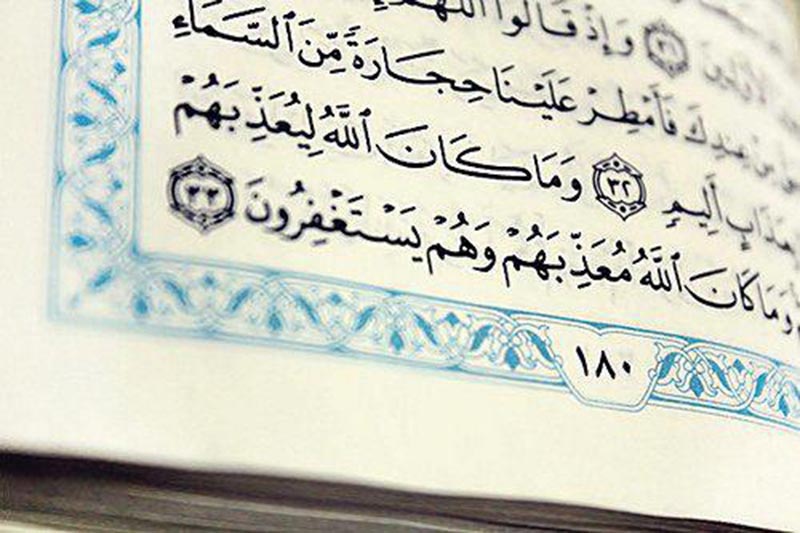 الأولين ۝٣١ وإذ قالوا اللهم
عندك فأمطر علينا حجارة من السماء
بعذاب أليم ۝٣٢ وما كان الله ليعذبهم
وما كان الله معذبهم وهم يستغفرون ۝٣٣
١٨٠